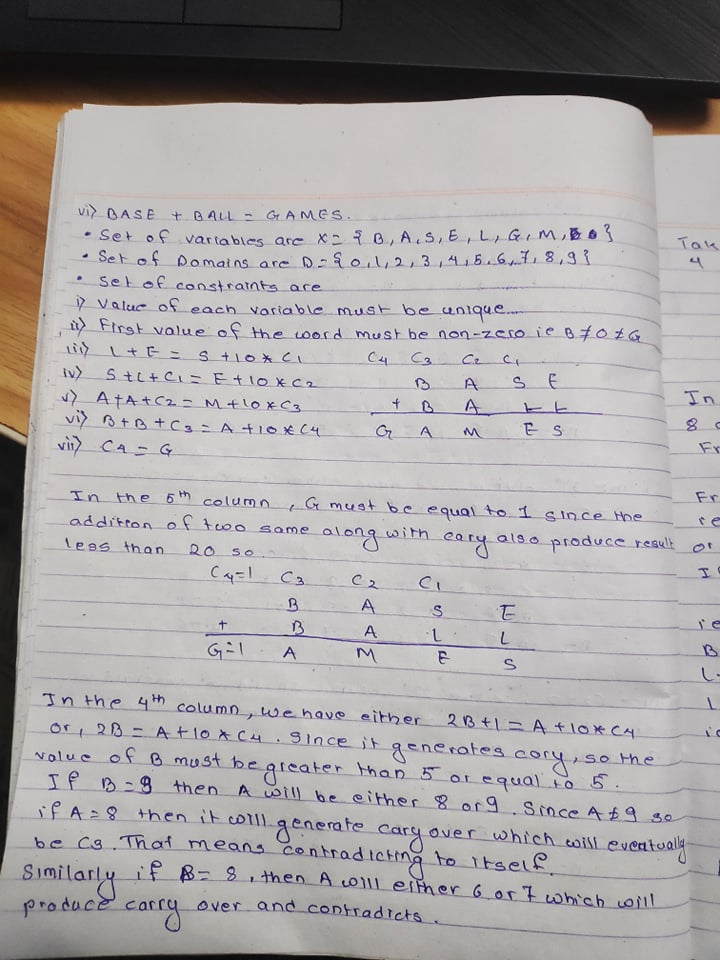 vi) BASE + BALL = GAMES.
• Set of variables are X = { B, A, S, E, L, G, M, }
• Set of Domains are D = { 0, 1, 2, 3, 4, 5, 6, 7, 8, 9 }
• Set of constraints are
i) Value of each variable must be unique.
ii) First value of the word must be non-zero ie B ≠ 0 ≠ G
iii) L + E = S + 10 * C1
C4 C3 C2 C1
iv) S + L + C1 = E + 10 * C2
B A S E
v) A + A + C2 = M + 10 * C3
+ B A L L
vi) B + B + C3 = A + 10 * C4
G A M E S
vii) C4 = G
In the 5th column, G must be equal to 1 since the
addition of two same along with cary also produce result
less than 20 so.
C4=1 C3 C2 C1
B A S E
+ B A L L
G=1 A M E S
In the 4th column, we have either 2B+1 = A+10*C4
or, 2B = A+10*C4. Since it generates cary, so the
value of B must be greater than 5 or equal to 5.
If B=9 then A will be either 8 or 9. Since A ≠ 9 so
if A=8 then it will generate cary over which will eventually
be C3. That means contradicting to itself.
Similarly if B=8, then A will either 6 or 7 which will
produce carry over and contradicts.
Tak
4
In
8
Fr
Fr
re
or
I
ie
B
L